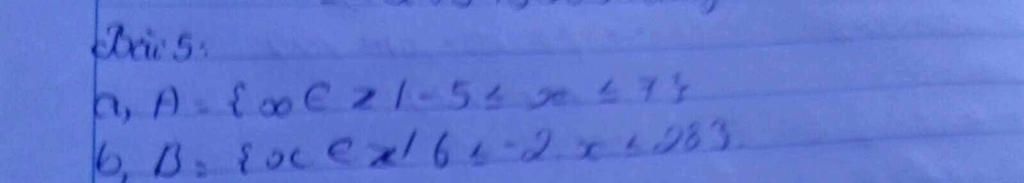 Bài 5:
a, A = {x ∈ Z | -5 ≤ x ≤ 7}
b, B = {x ∈ Z | 6 ≤ -2x ≤ 28}.